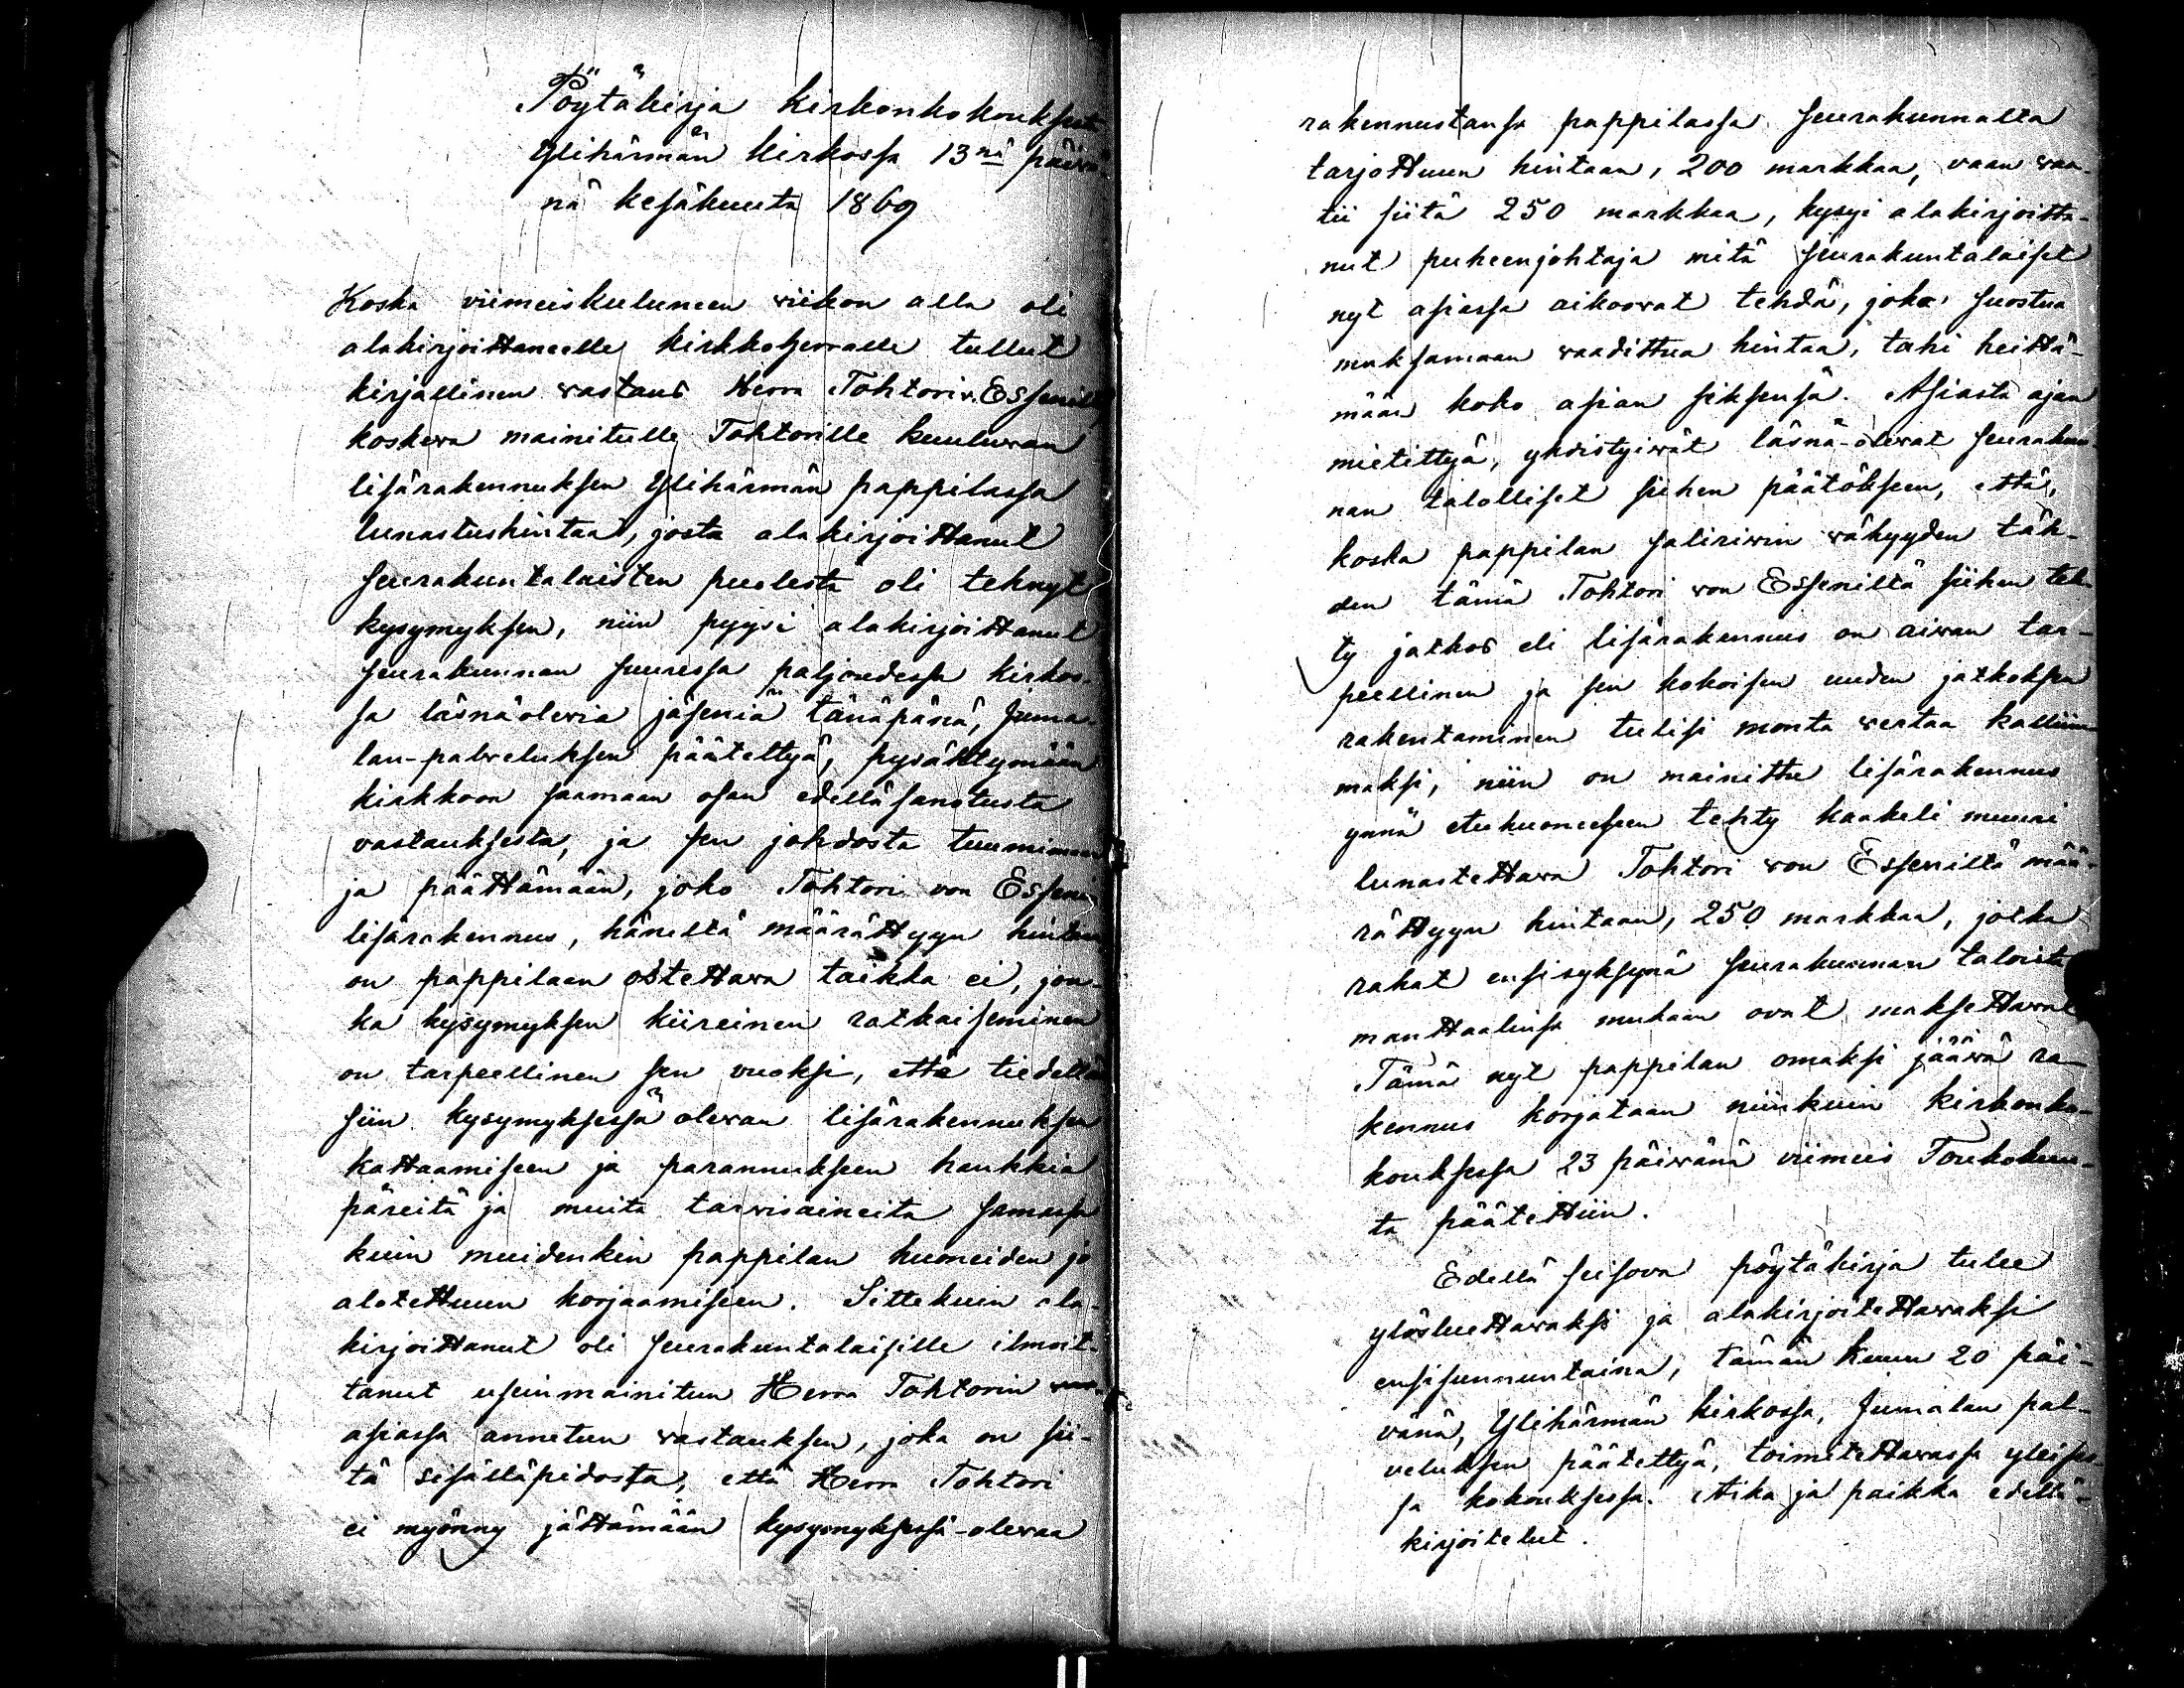 Pöytäkirja kirkonkokoukses
Ylihärmän kirkossa 13nä päivä
nä kesäkuuta 1869
Koska viimeiskuluneen viikon alla oli
alakirjoittaneelle kirkkoherralle tullut
kirjallinen vastaus Herra Tohtori v. Essenil
koskeva mainitulle Tohtorille kuuluvan
lisärakennuksen Ylihärmän pappilassa
lunastushintaa, josta alakirjoittanut
seurakuntalaisten puolesta oli tehnyt
kysymyksen, niin pyysi alakirjoittanut
seurakunnan suuressa paljoudessa kirkos-
sa läsnäolevia jäseniä tänäpänä, Juma-
lan-palveluksen päätettyä, pysähtymään
kirkkoon saamaan osan edelläsanotusta
vastauksesta, ja sen johdosta tuumimaan
ja päättämään, joko Tohtori von Essenin
lisärakennus, häneltä määrättyyn hintaan
on pappilaan ostettava taikka ei, jon-
ka kysymyksen kiireinen ratkaiseminen
on tarpeellinen sen vuoksi, että tiedettä
siin kysymyksessä olevan lisärakennuksen
kattaamiseen ja parannukseen hankkia
päreitä ja muita tarvisaineita samassa
kuin muidenkin pappilan huoneiden jo
alotettuun korjaamiseen. Sittekuin ala-
kirjoittanut oli seurakuntalaisille ilmoit-
tanut useinmainitun Herra Tohtorin
asiassa annetun vastauksen, joka on sii-
tä sisälläpidosta, että Herra Tohtori
ei myönny jättämään kysymyksessä-olevaa
rakennustansa pappilassa seurakunnalta
tarjottuun hintaan, 200 markkaa, vaan vaa-
tii siitä 250 markkaa, kysyi alakirjoitta-
nut puheenjohtaja mitä seurakuntalaiset
nyt asiassa aikoovat tehdä, joko suostua
maksamaan vaadittua hintaa, tahi heittä-
mään koko asian siksensä. Asiasta ajan
mietittyä, yhdistyivät läsnä-olevat seurakun
nan talolliset siihen päätökseen, että,
koska pappilan salirivin vähyyden täh-
den tämä Tohtori von Esseniltä siihen teh-
ty jatkos eli lisärakennus on aivan tar-
peellinen ja sen kokoisen uuden jatkoksen
rakentaminen tulisi monta vertaa kalliim
maksi, niin on mainittu lisärakennus
ynnä etuhuoneeseen tehty kaakeli muuri
lunastettava Tohtori von Esseniltä mää-
rättyyn hintaan, 250 markkaa, jotka
rahat ensisyksynä seurakunnan taloista
manttaalinsa mukaan ovat maksettavat
Tämä nyt pappilan omaksi jäävä ra-
kennus korjataan niinkuin kirkonko-
kouksessa 23 päivänä viimeis Toukokuu-
ta päätettiin.
Edellä seisova pöytäkirja tulee
ylösluettavaksi ja alakirjoitettavaksi
ensisunnuntaina, tämän kuun 20 päi-
vänä, Ylihärmän kirkossa, Jumalan pal-
veluksen päätettyä, toimitettavassa yleises
sa kokouksessa. Aika ja paikka edellä-
kirjoitetut.